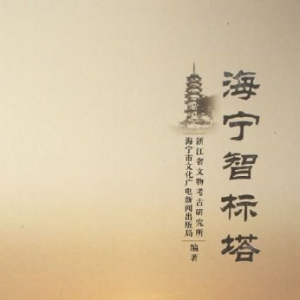 海宁智标塔
浙江省文物考古研究所
海宁市文化广电新闻出版局
编著